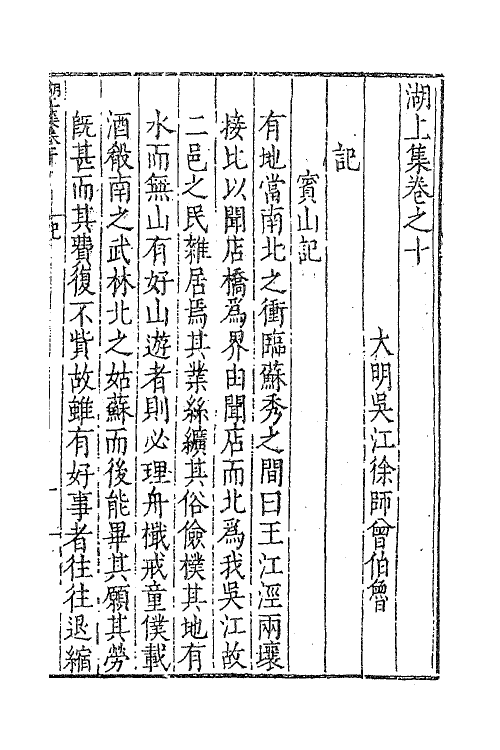 湖上集卷之十
大明吳江徐師曾伯魯
記
賓山記
有地當南北之衝臨蘇秀之間曰王江涇兩壤
接比以聞店橋爲界由聞店而北爲我吳江故
二邑之民雜居焉其業絲纊其俗儉樸其地有
水而無山有好山遊者則必理舟檝戒童僕載
酒殽南之武林北之姑蘇而後能畢其願其勞
旣甚而其費復不貲故雖有好事者往往退縮